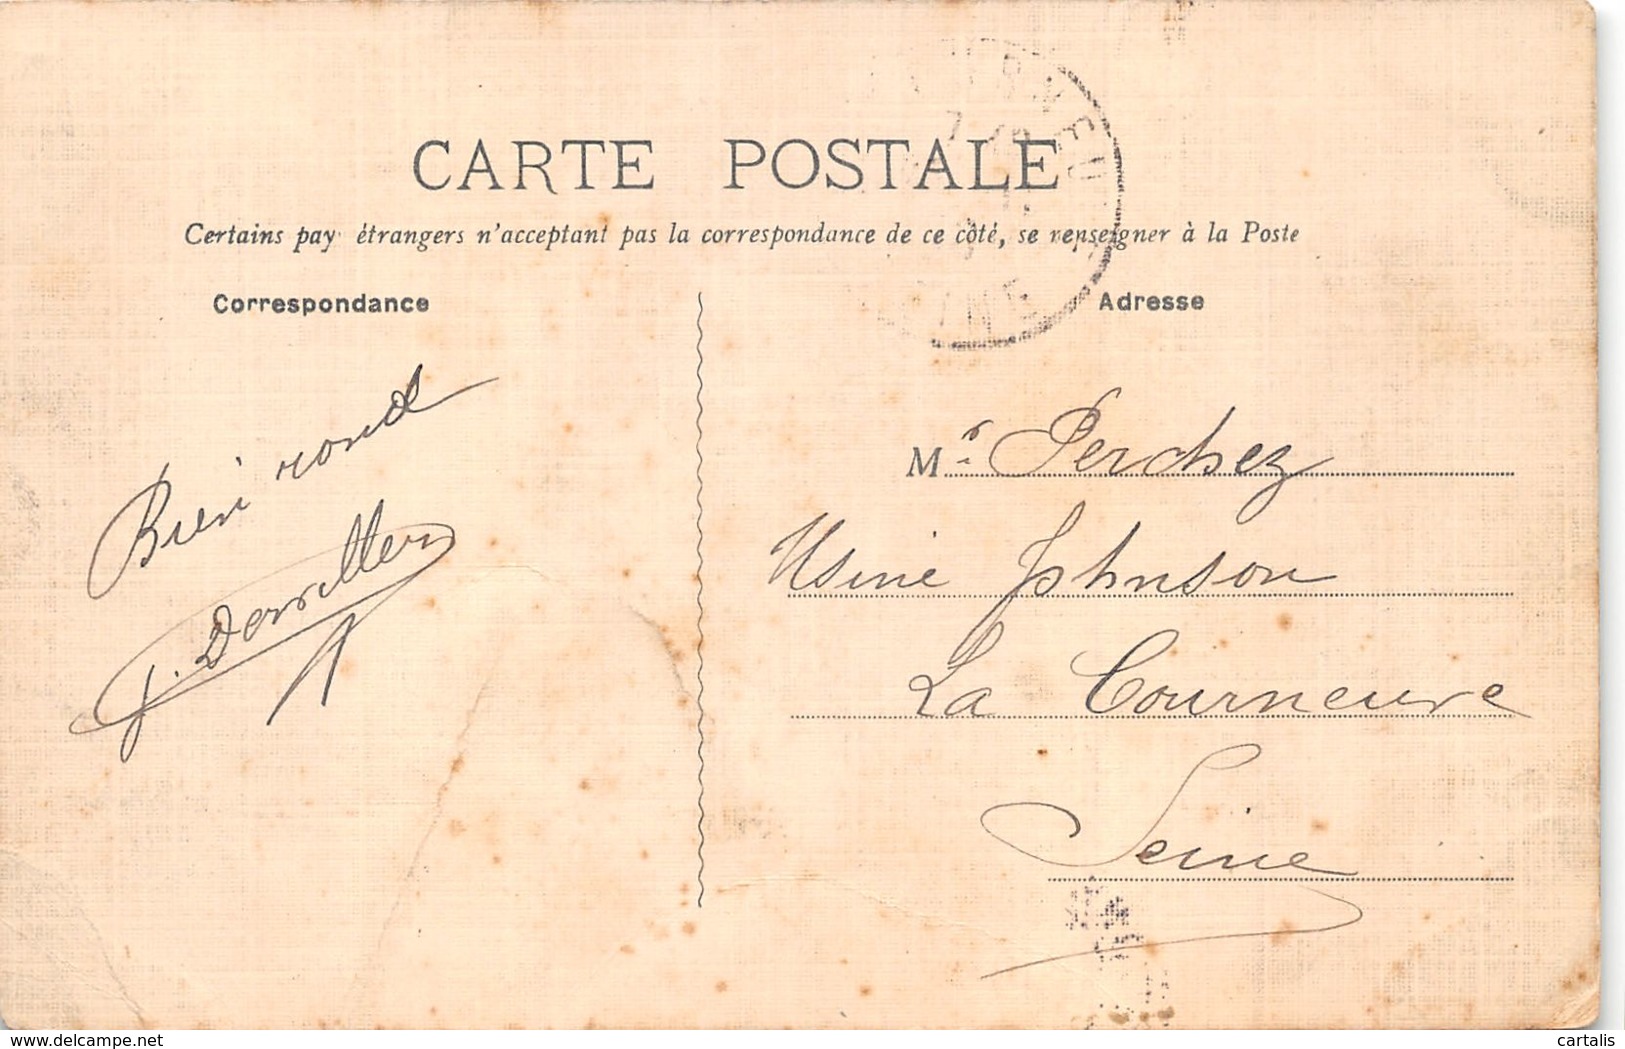 CARTE POSTALE
Certains pay étrangers n'acceptant pas la correspondance de ce côté, se renseigner à la Poste
Correspondance
Adresse
Bien rond
Mr Perchez
Usine Johnson
La Courneuve
Seine
delcampe.net
cartalis